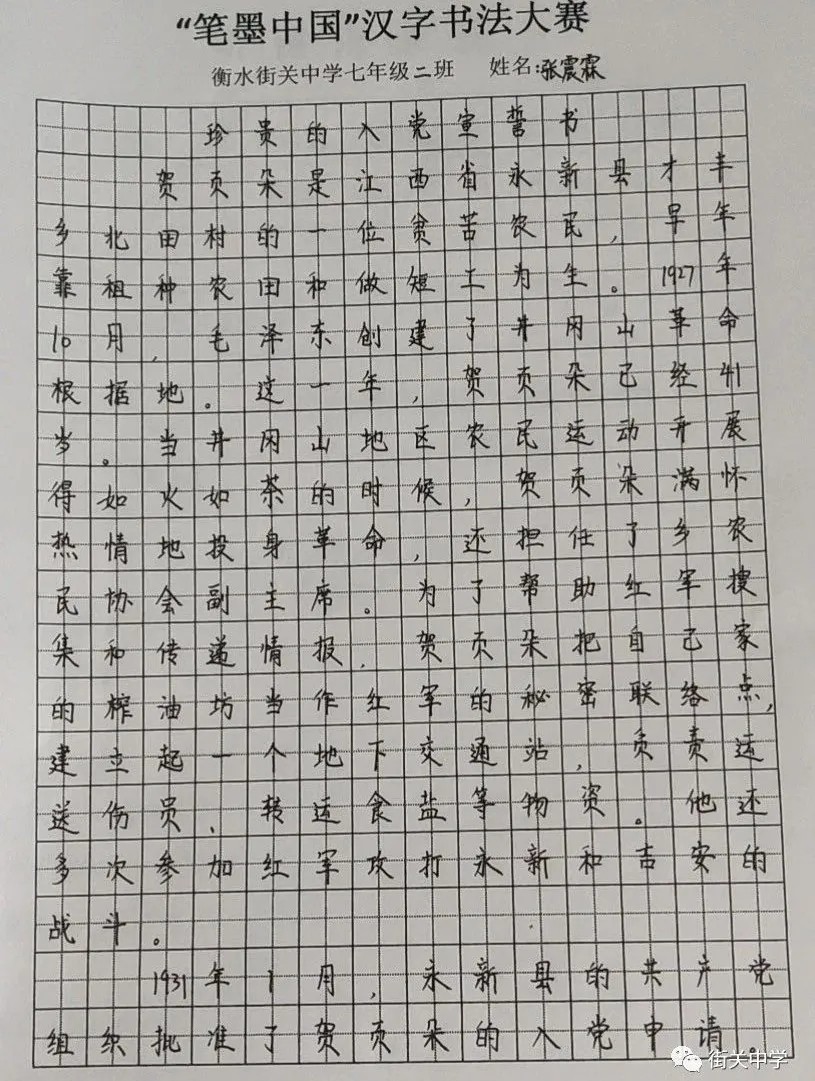 “笔墨中国”汉字书法大赛
衡水街关中学七年级二班 姓名:张震霖
珍贵的入党宣誓书
贺页朵是江西省永新县才丰
乡北田村的一位贫苦农民，早年
靠租种农田和做短工为生。1927年
10月，毛泽东创建了井冈山革命
根据地。这一年，贺页朵已经41
岁。当井冈山地区农民运动开展
得如火如荼的时候，贺页朵满怀
热情地投身革命，还担任了乡农
民协会副主席。为了帮助红军搜
集和传递情报，贺页朵把自己家
的榨油坊当作红军的秘密联络点，
建立起一个地下交通站，负责运
送伤员、转运食盐等物资。他还
多次参加红军攻打永新和吉安的
战斗。
1931年1月，永新县的共产党
组织批准了贺页朵的入党申请。
街关中学